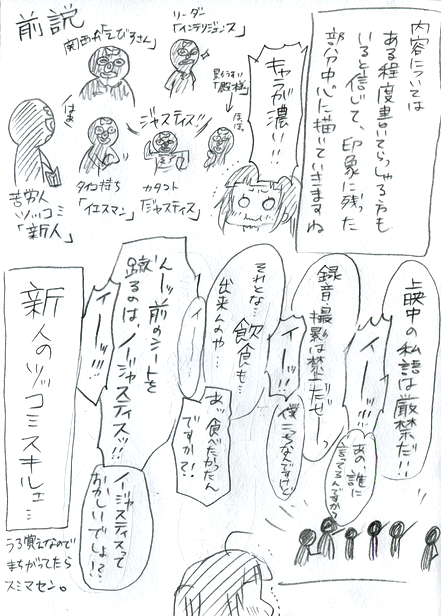 内容については
ある程度書いてらっしゃる方も
いると信じて、印象に残った
部分中心に描いていきますね
前説
リーダー
「インテリジェンス」
関西弁「えびすさん」
「殿様」
ほほ
キャラが濃い!!
ジャスティス!!
はぁ
苦労人
ツッコミ
「新人」
タイコ持ち
「イエスマン」
カタコト
「ジャスティス」
上映中の私語は厳禁だ!!
イーッ!!!
あの、誰に
言ってるんですか?
録音・撮影は禁止だぜーっ
イーッ!!
僕こっちなんですけど
それとな…飲食も…
出来んのや…
イ…
あッ食べたかったん
ですかね?
んーッ前のシートを
蹴るのは、ノージャスティスッ!!
イーッ!!!
ノージャスティスって
おかしいでしょ!?
新人のツッコミスキルェ…
うろ覚えなので
まちがってたら
スミマセン。